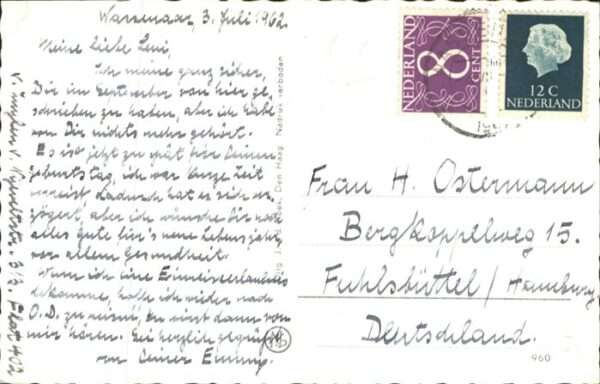 Wassenaar, 3. Juli 1962.
Meine liebe Leni,
Ich meine ganz sicher,
Dir im September von hier ge-
schrieben zu haben, aber ich habe
von Dir nichts mehr gehört.
Es ist jetzt zu spät für Deinen
Geburtstag, ich war kurze Zeit
verreist dadurch hat es sich ver-
zögert, aber ich wünsche Dir noch
alles Gute für's neue Lebensjahr,
vor allem Gesundheit.
Wenn ich eine Einreiseerlaubnis
bekomme, hoffe ich wieder nach
O.D. zu reisen, du wirst dann von
mir hören. Sei herzlich gegrüßt
von Deiner
Flat 402
Nadruk verboden
Den Haag
8
CENT
NEDERLAND
12 C
NEDERLAND
Frau H. Ostermann
Bergkoppelweg 15.
Fuhlsbüttel / Hamburg
Deutschland.
960